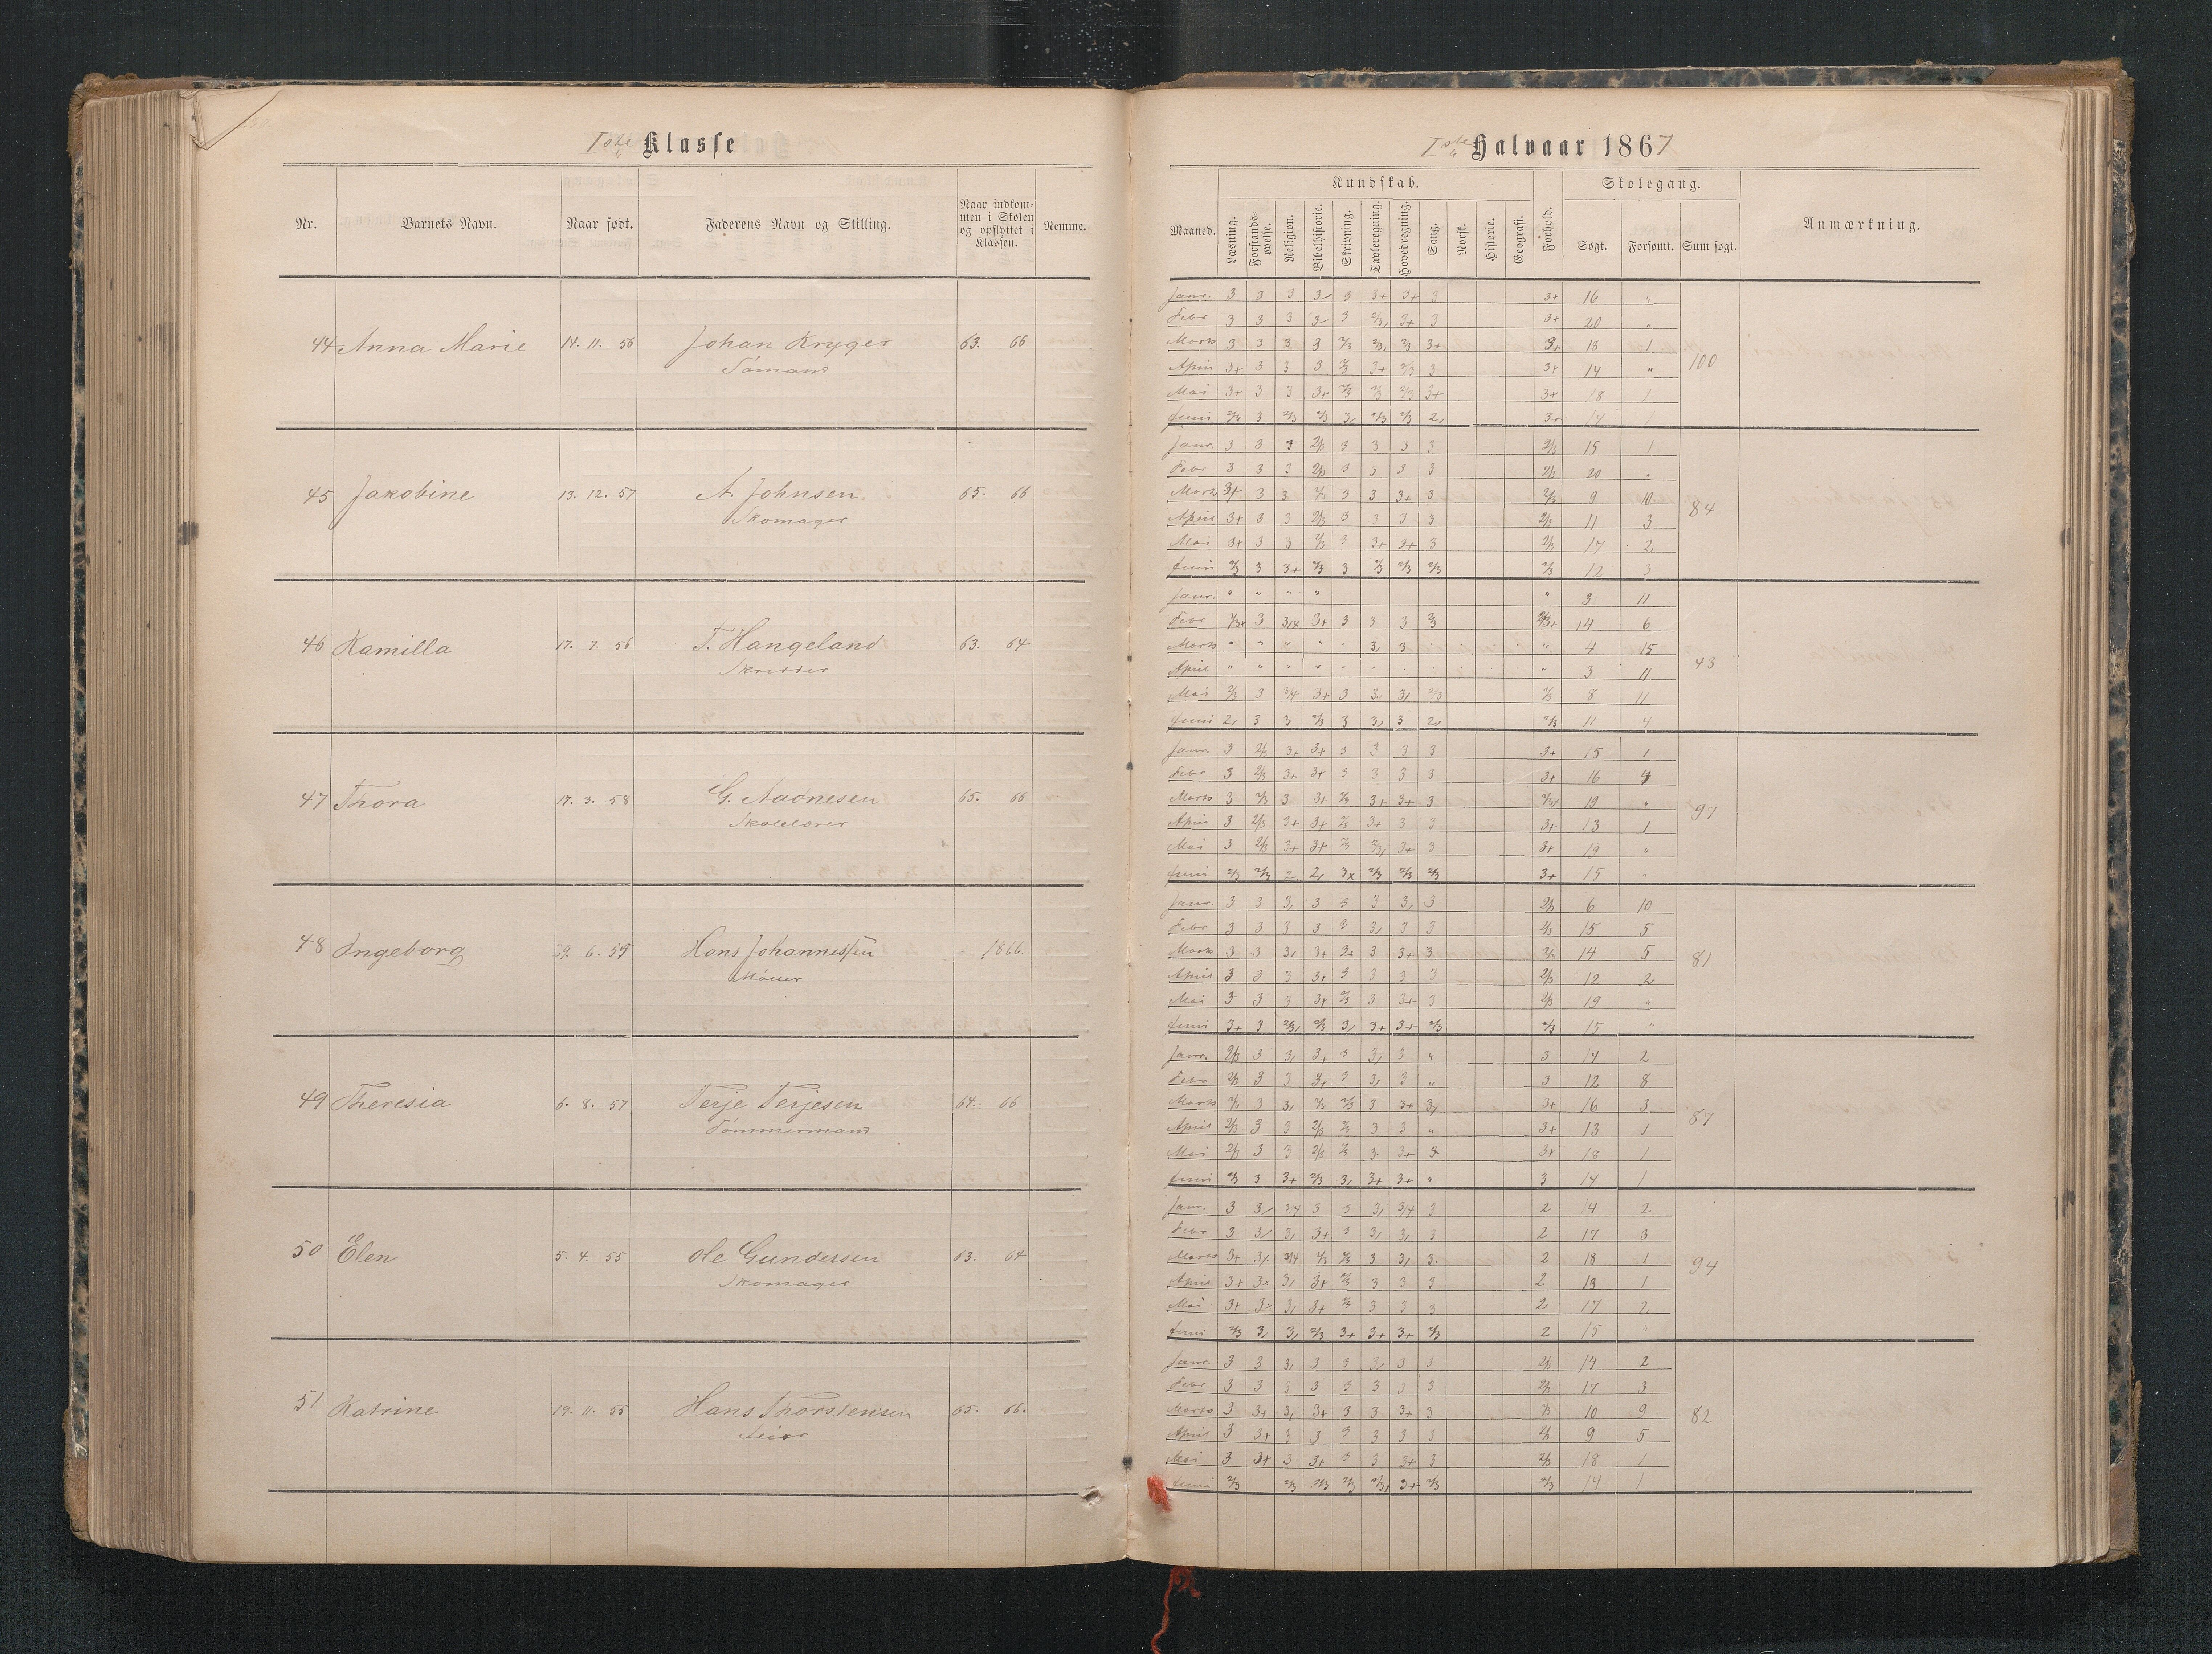 Iste Klasse
Nr. Barnets Navn. Naar født. Faderens Navn og Stilling. Naar indkommen i Skolen og opflyttet i Klassen. Nemme.
44 Anna Marie 14. 11. 56 Johan Kryger 63. 66
Sømand
45 Jakobine 13. 12. 57 A. Johnsen 65. 66
Skomager
46 Kamilla 17. 7. 56 T. Hangeland 63. 64
Skredder
47 Thora 17. 3. 58 G. Aadnesen 65. 66
Skolelærer
48 Ingeborg 29. 6. 59 Hans Johannessen 1866.
Møller
49 Theresia 6. 8. 57 Terje Terjesen 64. 66
Tømmermand
50 Elen 5. 4. 55 Ole Gundersen 63. 64
Skomager
51 Katrine 19. 11. 55 Hans Thorstensen 65. 66.
Iste Halvaar 1867
Kundskab. Skolegang.
Maaned. Læsning. Forstandsøvelse. Religion. Bibelhistorie. Skrivning. Tavleregning. Hovedregning. Sang. Norsk. Historie. Geografi. Forhold. Søgt. Forsømt. Sum søgt. Anmærkning.
Janr. 3 3 3 3/ 3 3+ 3+ 3 3+ 16 "
Febr 3 3 3 3/ 3 2/3, 3+ 3 3+ 20 "
Marts 3 3 3 3 2/3 2/3, 2/3 3+ 3+ 18 1
April 3+ 3 3 3 2/3 3+ 2/3 3 3+ 14 " 100
Mai 3+ 3 3 3+ 2/3 2/3 2/3 3+ 3+ 18 1
Juni 2/3 3 2/3 2/3 3, 2/3 2/3 2, 3+ 14 1
Janr. 3 3 3 2/3 3 3 3 3 2/3 15 1
Febr 3 3 3 2/3 3 3 3 3 2/3 20 "
Marts 3+ 3 3 2/3 3 3 3+ 3 2/3 9 10
April 3+ 3 3 2/3 3 3 3 3 2/3 11 3 84
Mai 3+ 3 3 2/3 3 3+ 3+ 3 2/3 17 2
Juni 2/3 3 3+ 2/3 3 2/3 2/3 2/3 2/3 12 3
Janr. " " " " " 3 11
Febr 3 3+ 3 3 3 2/3 14 6
Marts " " " " " 3, 3 " 4 15
April " " " " " " 3 11 43
Mai 2/3 3 3/4 3+ 3 3, 3, 2/3 2/3 8 11
Juni 2, 3 3 2/3 3 3, 3 2, 2/3 11 4
Janr. 3 2/3 3+ 3+ 3 3 3 3 3+ 15 1
Febr 3 2/3 3+ 3+ 3 3 3 3 3+ 16 4
Marts 3 2/3 3 3+ 2/3 3+ 3+ 3 19 "
April 3 2/3 3+ 3+ 2/3 3+ 3 3 3+ 13 1 97
Mai 3 2/3 3+ 3+ 2/3 2/3, 3+ 3 3+ 19 "
Juni 2/3 2/3 2 2, 3x 2/3 2/3 2/3 3+ 15 "
Janr. 3 3 3, 3 3 3 3, 3 2/3 6 10
Febr 3 3 3 3 3 3, 3 3 2/3 15 5
Marts 3 3 3, 3+ 3+ 3 3+ 3 2/3 14 5
April 3 3 3 3+ 3 3 3 3 2/3 12 2 81
Mai 3 3 3 3+ 2/3 3 3+ 3 2/3 19 "
Juni 3+ 3 2/3, 2/3 3, 3+ 3+ 2/3 2/3 15 "
Janr. 2/3 3 3, 3+ 3 3, 3 " 3 14 2
Febr 2/3 3 3 3+ 3 3, 3 " 3 12 8
Marts 2/3 3 3, 2/3 2/3 3 3+ 3, 3+ 16 3
April 2/3 3 3 2/3 2/3 3 3 " 3+ 13 1 87
Mai 2/3 3 3 2/3 2/3 3 3+ 3 3+ 18 1
Juni 2/3 3 3+ 2/3 3, 3+ 3+ " 3 14 1
Janr. 3 3/ 3/4 3 3 3, 3/4 3 2 14 2
Febr 3 3/ 3, 3+ 3 3, 3, 3 2 17 3
Marts 3+ 3x 3/4 2/3 2/3 3 3, 3. 2 18 1
April 3+ 3x 3, 3+ 2/3 3 3 3 2 13 1 94
Mai 3+ 3x 3, 3+ 2/3 3 3 3 2 17 2
Juni 2/3 3, 3, 2/3 3+ 3+ 3+ 2/3 2 15 "
Janr. 3 3 3, 3 3 3, 3 3 2/3 14 2
Febr 3 3 3 3 3 3 3 3 2/3 17 3
Marts 3 3+ 3, 3+ 3 3 3+ 3 2/3 10 9
April 3 3+ 3 3 3 3 3 3 2/3 9 5 82
Mai 3 3+ 3 3+ 3 3 3+ 3 2/3 18 1
Juni 2/3 2/3 2/3 2/3 2/3, 3+ 2/3 2/3 14 1